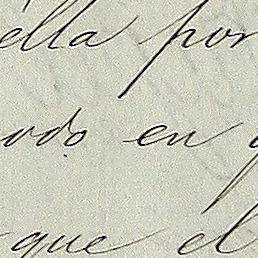 ella por
odo en
que el